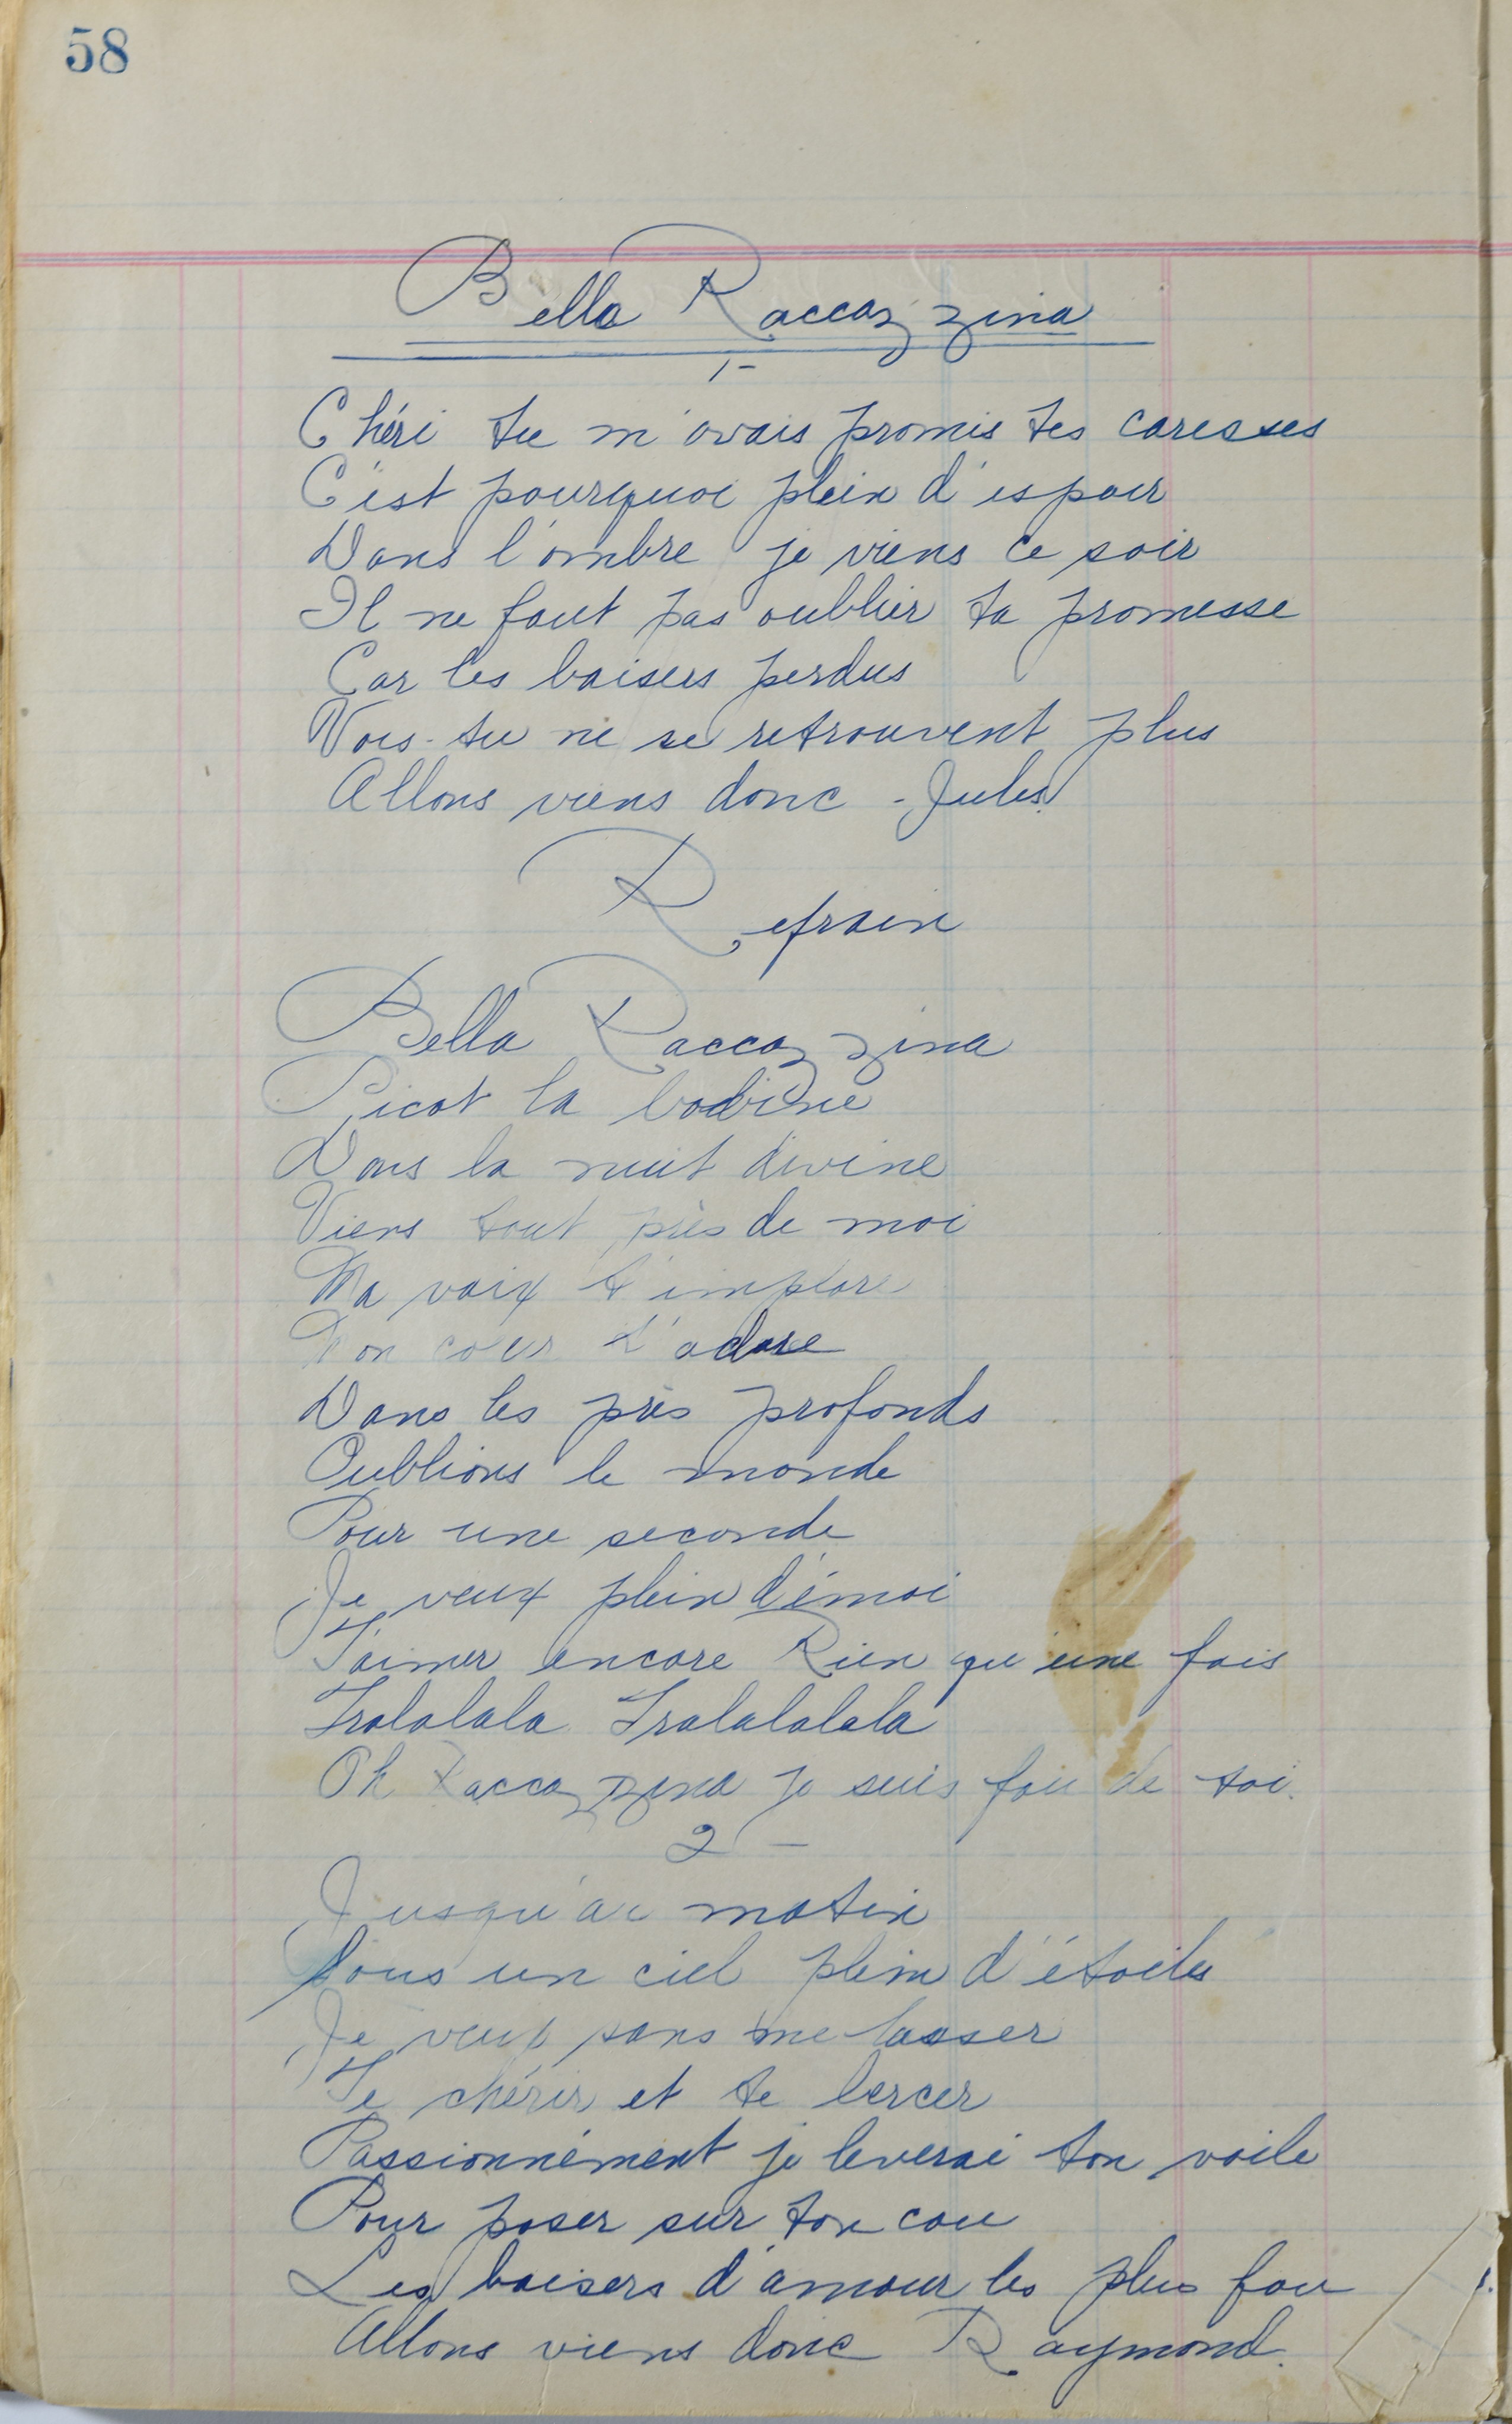 58
Bella Raccazzina
1-
Chéri tu m'avais promis tes caresses
C'est pourquoi plein d'espoir
Dans l'ombre je viens ce soir
Il ne faut pas oublier ta promesse
Car les baisers perdus
Vois-tu ne se retrouvent plus
Allons viens donc - Jules.
Refrain
Bella Raccazzina
Picot la bobine
Dans la nuit divine
Viens tout près de moi
Ma voix t'implore
Mon coeur t'adore
Dans les près profonds
Oublions le monde
Pour une seconde
Je veux plein d'émoi
T'aimer encore Rien qu'une fois
Tralalala Tralalalala
Oh Raccazzina je suis fou de toi.
2-
Jusqu'au matin
Sous un ciel plein d'étoiles
Je veux sans me lasser
Te chérir et te bercer
Passionnément je leverai ton voile
Pour poser sur ton cou
Les baisers d'amour les plus fou
Allons viens donc Raymond.